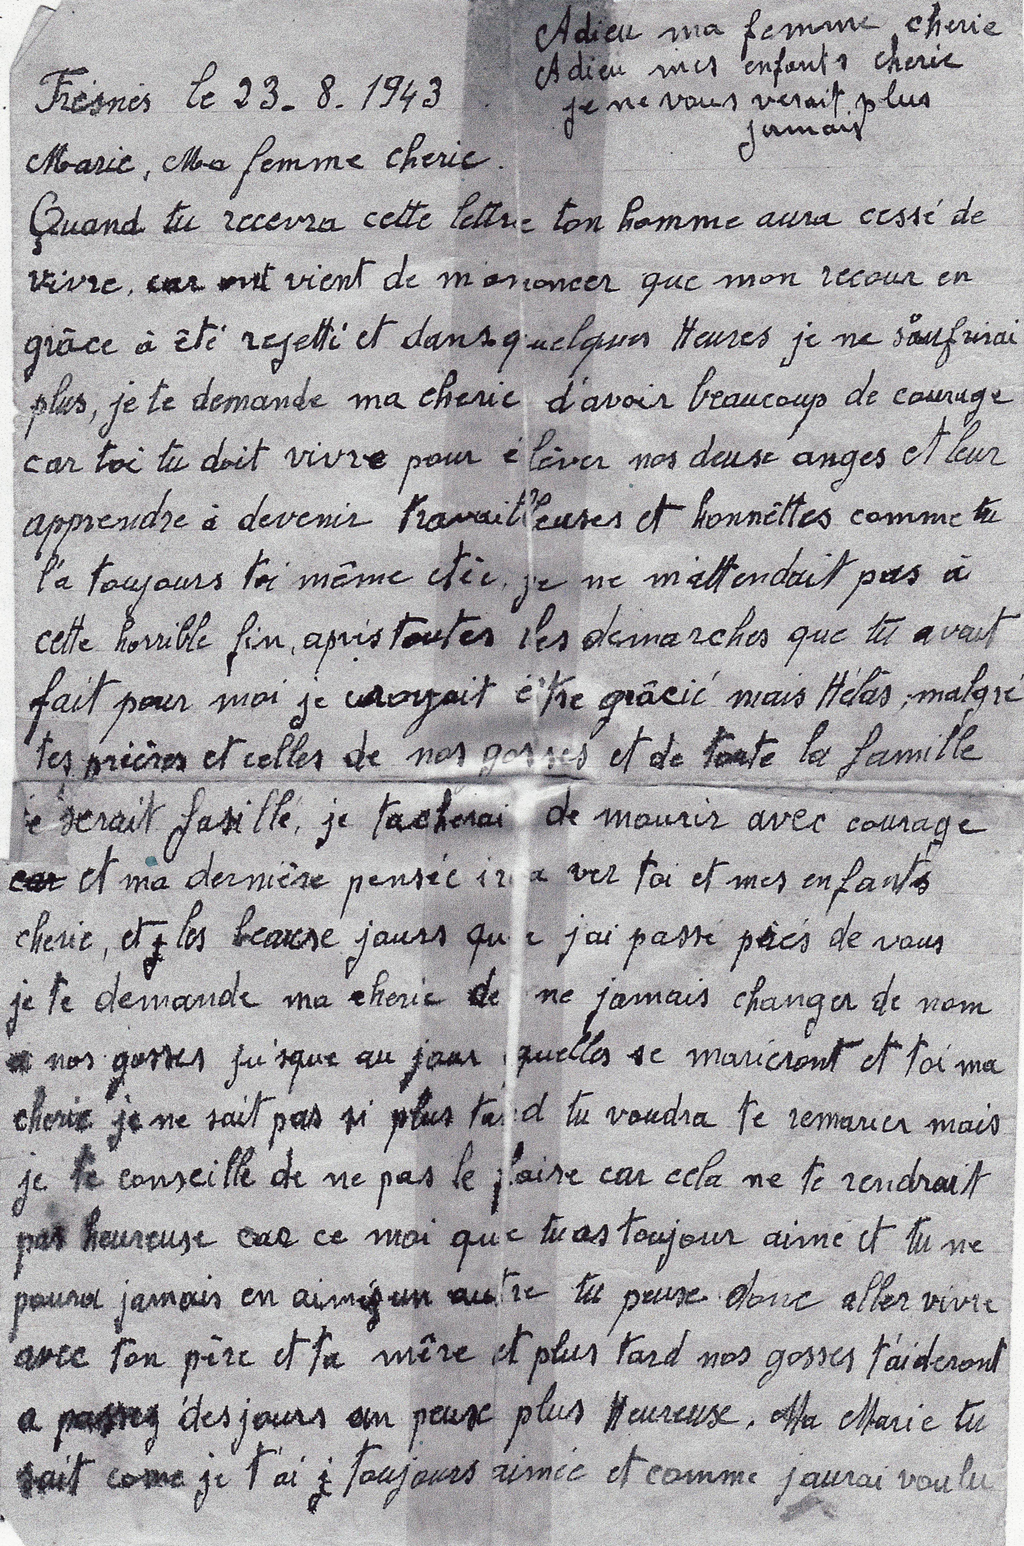 Adieu ma femme cherie
Adieu mes enfants cherie
je ne vous verait plus
jamais
Fresnes le 23-8-1943
Marie, Ma femme cherie.
Quand tu recevra cette lettre ton homme aura cessé de
vivre, car ont vient de m'ononcer que mon recour en
grâce à êté rejetté et dans quelques Heures je ne soufrirai
plus, je te demande ma cherie d'avoir beaucoup de courage
car toi tu doit vivre pour élêver nos deuse anges et leur
apprendre à devenir travailleuses et honnêttes comme tu
l'a toujours toi même etée, je ne m'attendait pas à
cette horrible fin, apris toutes les demarches que tu avait
fait pour moi je croyait être grâcié mais Hélàs, malgré
tes prières et celles de nos gosses et de toute la famille
je serait fasillé, je tacherai de mourir avec courage
car et ma dernière pensée ira ver toi et mes enfants
cherie, et les beause jours que jai passé près de vous
je te demande ma cherie de ne jamais changer de nom
a nos gosses jusque au jour quelles se marieront et toi ma
cherie je ne sait pas si plus tard tu voudra te remarier mais
je te conseille de ne pas le faise car cela ne te rendrait
pas heureuse car ce moi que tu as toujour aimé et tu ne
poura jamais en aimé un autre tu peuse donc aller vivre
avec ton pêre et ta mêre et plus tard nos gosses t'aideront
a passez des jours un peuse plus Heureuse. Ma Marie tu
sait come je t'ai toujours aimée et comme jaurai voulu